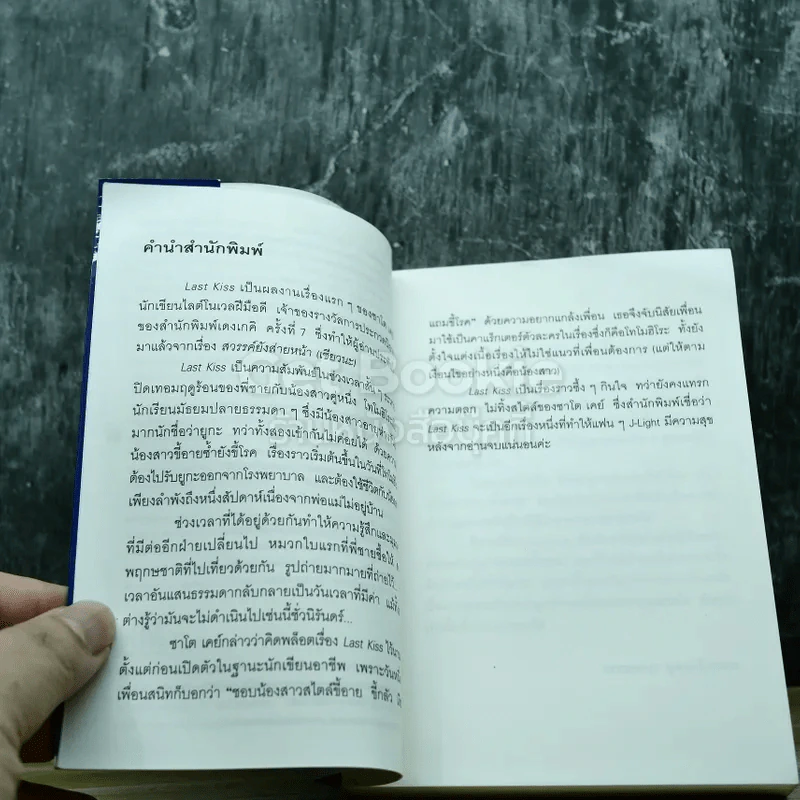 คำนำสำนักพิมพ์
Last Kiss เป็นผลงานเรื่องแรก ๆ ของซาโต เคย์
นักเขียนไลต์โนเวลฝีมือดี เจ้าของรางวัลการประกวด
ของสำนักพิมพ์เดงเกคิ ครั้งที่ 7 ซึ่งทำให้ผู้อ่าน
มาแล้วจากเรื่อง สวรรค์ยังส่ายหน้า (เซียวนะ)
Last Kiss เป็นความสัมพันธ์ในช่วงเวลาสั้น ๆ
ปิดเทอมฤดูร้อนของพี่ชายกับน้องสาวคู่หนึ่ง โทโมฮิโระ
นักเรียนมัธยมปลายธรรมดา ๆ ซึ่งมีน้องสาว
มากนักชื่อว่ายูกะ ทว่าทั้งสองเข้ากันไม่ค่อยได้ ด้วย
น้องสาวขี้อายซ้ำยังขี้โรค เรื่องราวเริ่มต้นขึ้นในวันที่
ต้องไปรับยูกะออกจากโรงพยาบาล และต้องใช้ชีวิตกับ
เพียงลำพังถึงหนึ่งสัปดาห์เนื่องจากพ่อแม่ไม่อยู่บ้าน
ช่วงเวลาที่ได้อยู่ด้วยกันทำให้ความรู้สึกและ
ที่มีต่ออีกฝ่ายเปลี่ยนไป หมวกใบแรกที่พี่ชายซื้อให้
พฤกษชาติที่ไปเที่ยวด้วยกัน รูปถ่ายมากมายที่ถ่ายไว้
เวลาอันแสนธรรมดากลับกลายเป็นวันเวลาที่มีค่า แม้ทั้ง
ต่างรู้ว่ามันจะไม่ดำเนินไปเช่นนี้ชั่วนิรันดร์...
ซาโต เคย์กล่าวว่าคิดพล็อตเรื่อง Last Kiss ไว้
ตั้งแต่ก่อนเปิดตัวในฐานะนักเขียนอาชีพ เพราะวันหนึ่ง
เพื่อนสนิทก็บอกว่า "ชอบน้องสาวสไตล์ขี้อาย ขี้กลัว
แถมขี้โรค" ด้วยความอยากแกล้งเพื่อน เธอจึงจับนิสัยเพื่อน
มาใช้เป็นคาแร็กเตอร์ตัวละครในเรื่องซึ่งก็คือโทโมฮิโระ ทั้งยัง
ตั้งใจแต่งเนื้อเรื่องให้ไม่ใช่แนวที่เพื่อนต้องการ (แต่ให้ตาม
เงื่อนไขอย่างหนึ่งคือน้องสาว)
Last Kiss เป็นเรื่องราวซึ้ง ๆ กินใจ ทว่ายังคงแทรก
ความตลก ไม่ทิ้งสไตล์ของซาโต เคย์ ซึ่งสำนักพิมพ์เชื่อว่า
Last Kiss จะเป็นอีกเรื่องหนึ่งที่ทำให้แฟน ๆ J-Light มีความสุข
หลังจากอ่านจบแน่นอนค่ะ